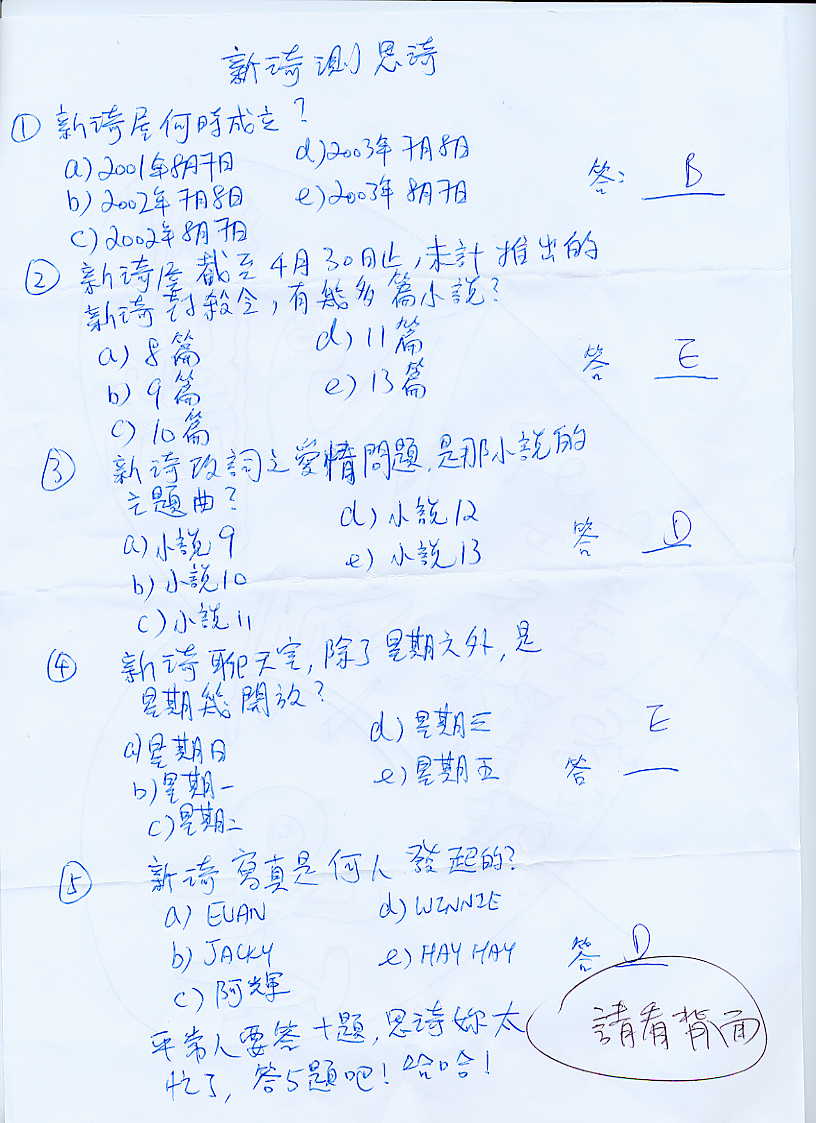 新琦測思琦
① 新琦屋何時成立?
a) 2001年8月7日
b) 2002年7月8日
c) 2002年8月7日
d) 2003年7月8日
e) 2003年8月7日
答: B
② 新琦屋截至4月30日止,未計推出的
新琦封殺令,有幾多篇小說?
a) 8篇
b) 9篇
c) 10篇
d) 11篇
e) 13篇
答 E
③ 新琦改詞之愛情問題,是那小說的
主題曲?
a) 小說9
b) 小說10
c) 小說11
d) 小說12
e) 小說13
答 D
④ 新琦聊天室,除了星期六外,是
星期幾開放?
a) 星期日
b) 星期一
c) 星期二
d) 星期三
e) 星期五
答 E
⑤ 新琦寫真是何人發起的?
a) EUAN
b) JACKY
c) 阿輝
d) WINNIE
e) HAY HAY
答 D
平常人要答十題,思琦妳太
忙了,答5題吧!哈哈!
請看背面